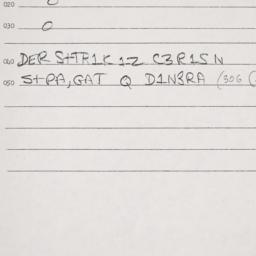 020
030 O
040 DER S+TR1K 1-Z C3R1S N
050 S+PA,GAT Q D1N3RA (306